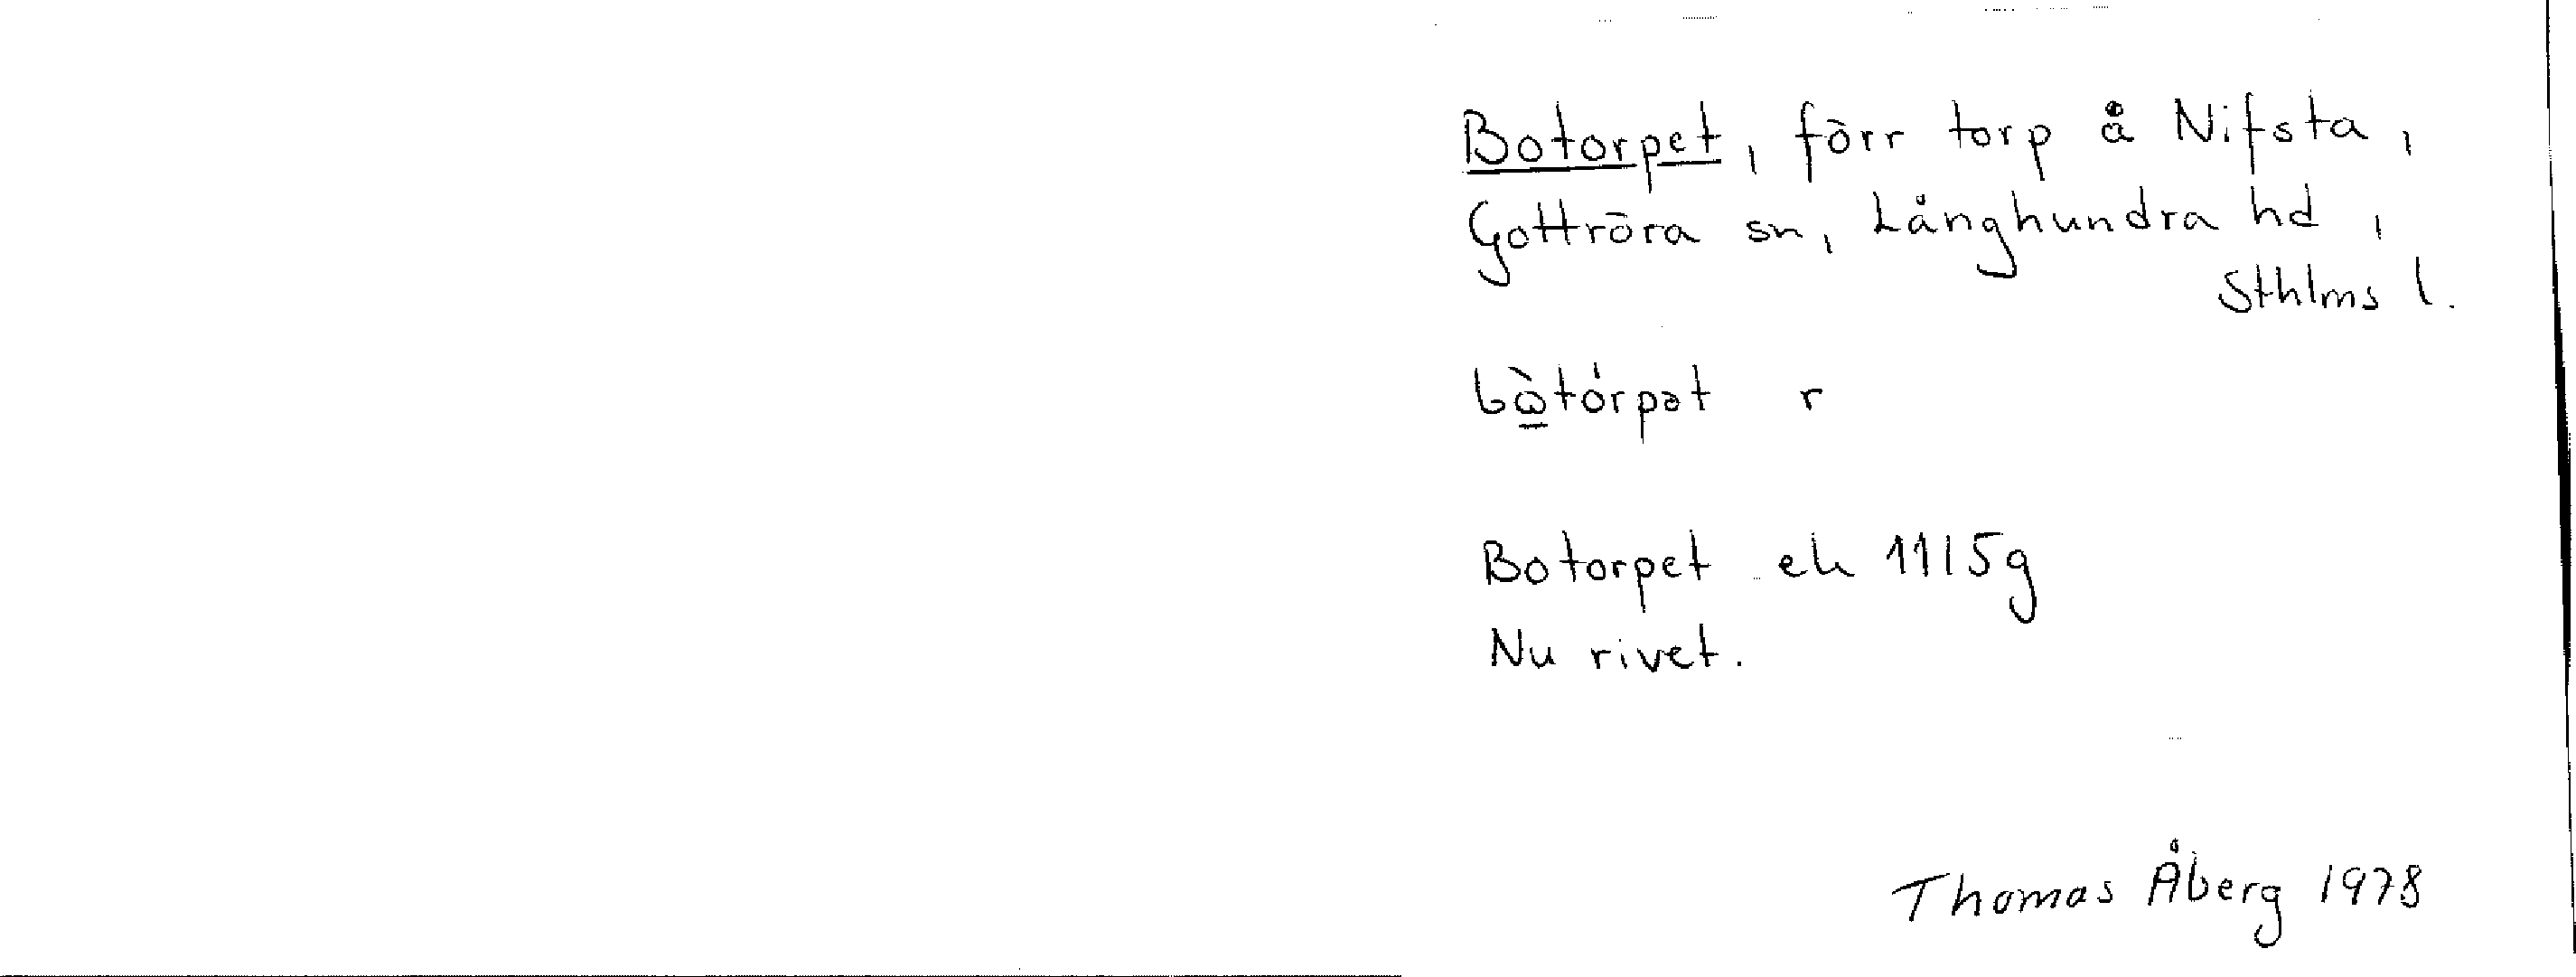 Botorpet, förr torp å Nifsta,
Gottröra sn, Långhundra hd,
Sthlms l.
bὼ̱tórpət r
Botorpet ek 11I5g
Nu rivet.
Thomas Åberg 1978